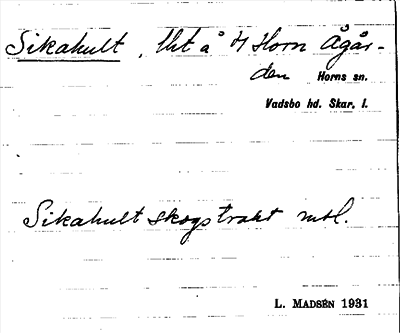 Sikahult, tht å 4/1 Horn Ågår-
den Horns sn.
Vadsbo hd. Skar. l.
Sikahult skogstrakt mtl.
L. MADSÉN 1931